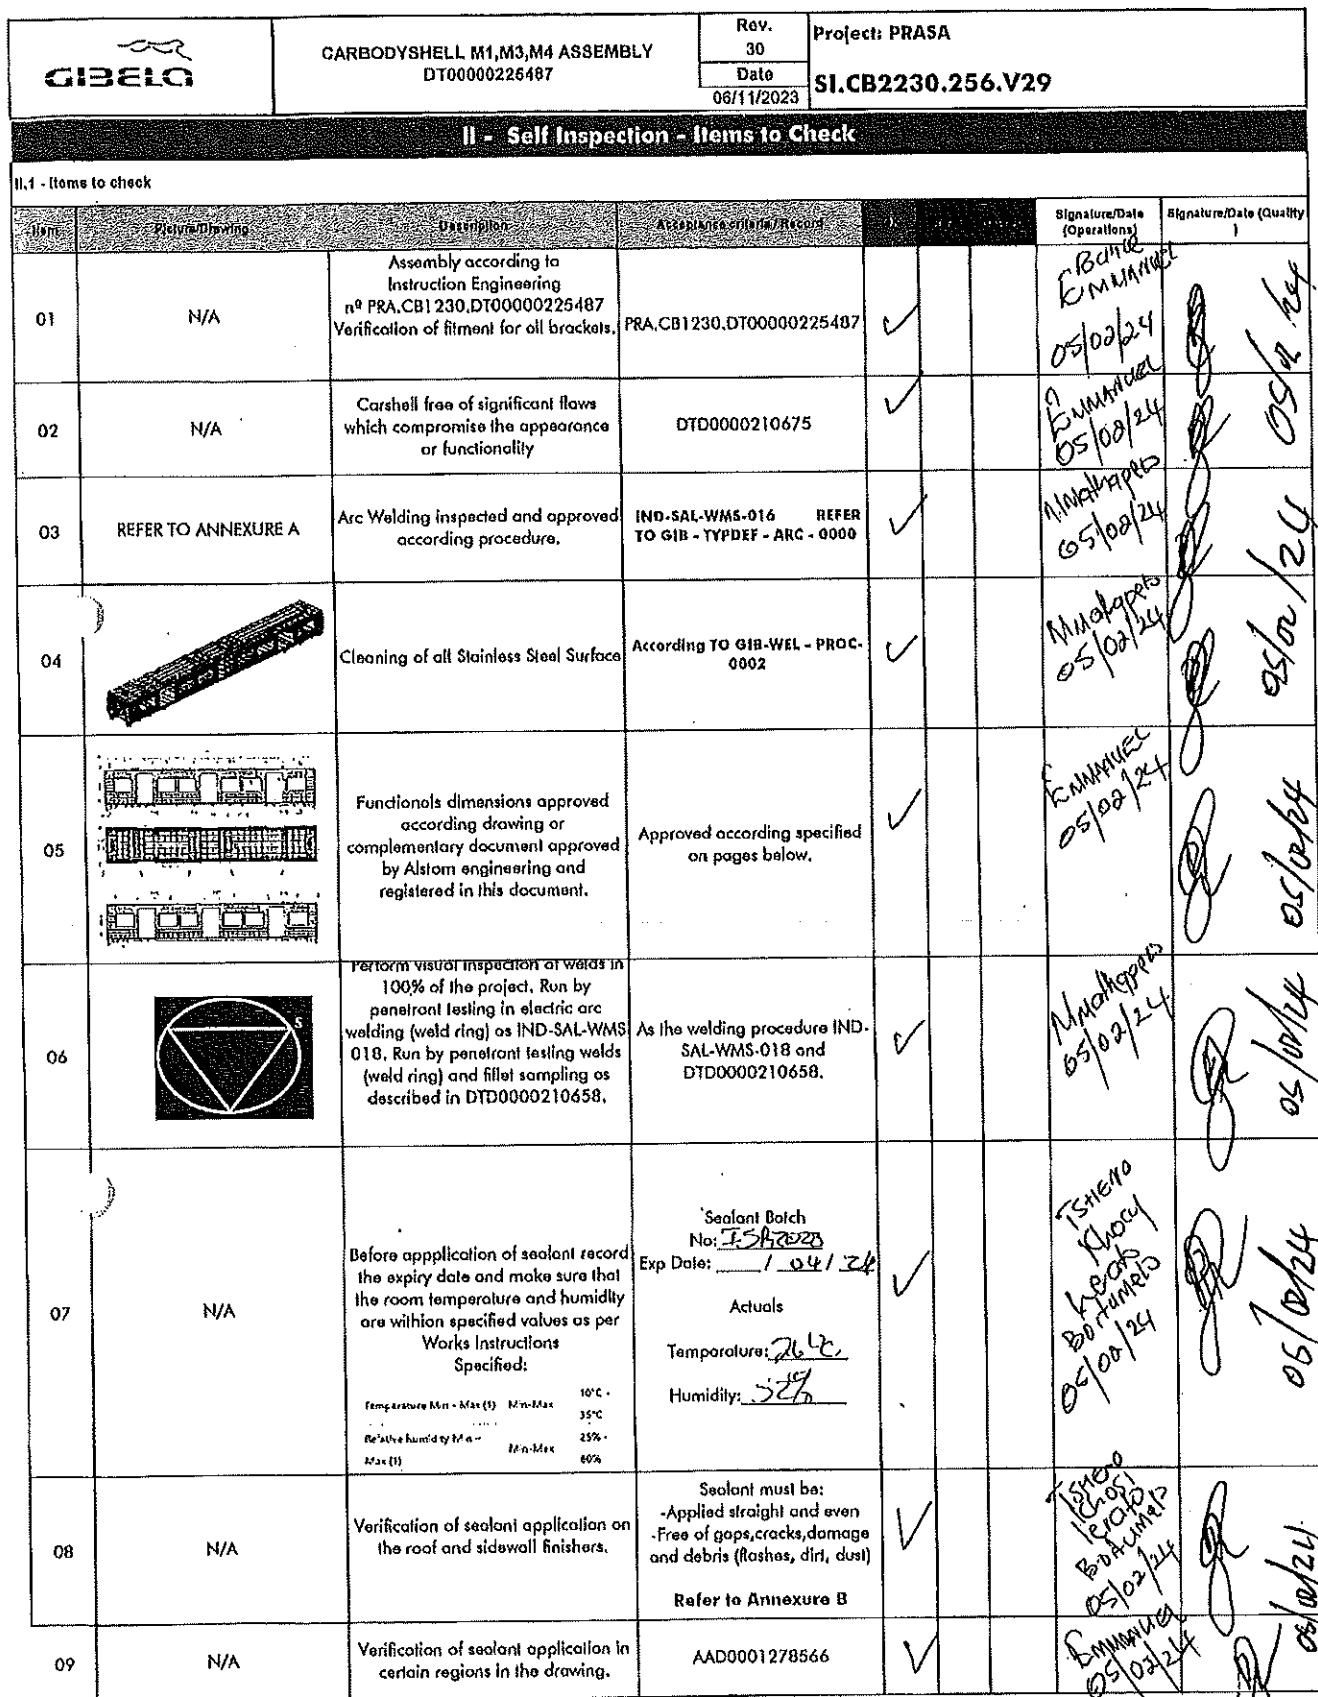 GIBELA
CARBODYSHELL M1,M3,M4 ASSEMBLY
DT00000225487
Rev.
30
Date
06/11/2023
Project: PRASA
SI.CB2230.256.V29
II - Self Inspection - Items to Check
II.1 - Items to check
Item
Picture/Drawing
Description
Acceptance criteria / Record
Signature/Date
(Operations)
Signature/Date (Quality
)
01
N/A
Assembly according to
Instruction Engineering
nº PRA.CB1230.DT00000225487
Verification of fitment for all brackets.
PRA.CB1230.DT00000225487
EMMANUEL
05/02/24
05/02/24
02
N/A
Carshell free of significant flaws
which compromise the appearance
or functionality
DTD0000210675
EMMANUEL
05/02/24
03
REFER TO ANNEXURE A
Arc Welding inspected and approved
according procedure.
IND-SAL-WMS-016 REFER
TO GIB - TYPDEF - ARC - 0000
05/02/24
05/02/24
04
Cleaning of all Stainless Steel Surface
According TO GIB-WEL - PROC-
0002
05/02/24
05
Functionals dimensions approved
according drawing or
complementary document approved
by Alstom engineering and
registered in this document.
Approved according specified
on pages below.
EMMANUEL
05/02/24
05/02/24
06
S
Perform visual inspection of welds in
100% of the project. Run by
penetrant testing in electric arc
welding (weld ring) as IND-SAL-WMS
018. Run by penetrant testing welds
(weld ring) and fillet sampling as
described in DTD0000210658.
As the welding procedure IND-
SAL-WMS-018 and
DTD0000210658.
05/02/24
05/02/24
07
N/A
Before appplication of sealant record
the expiry date and make sure that
the room temperature and humidity
are withion specified values as per
Works Instructions
Specified:
Temperature Min - Max (1) Min-Max 10°C -
35°C
Relative humidity Min -
Max (1) Min-Max 25% -
60%
Sealant Batch
No:
Exp Date: / 04 / 24
Actuals
Temperature: 26
Humidity: 52%
TSHENO
05/02/24
05/02/24
08
N/A
Verification of sealant application on
the roof and sidewall finishers.
Sealant must be:
-Applied straight and even
-Free of gaps,cracks,damage
and debris (flashes, dirt, dust)
Refer to Annexure B
05/02/24
05/02/24
09
N/A
Verification of sealant application in
certain regions in the drawing.
AAD0001278566
EMMANUEL
05/02/24